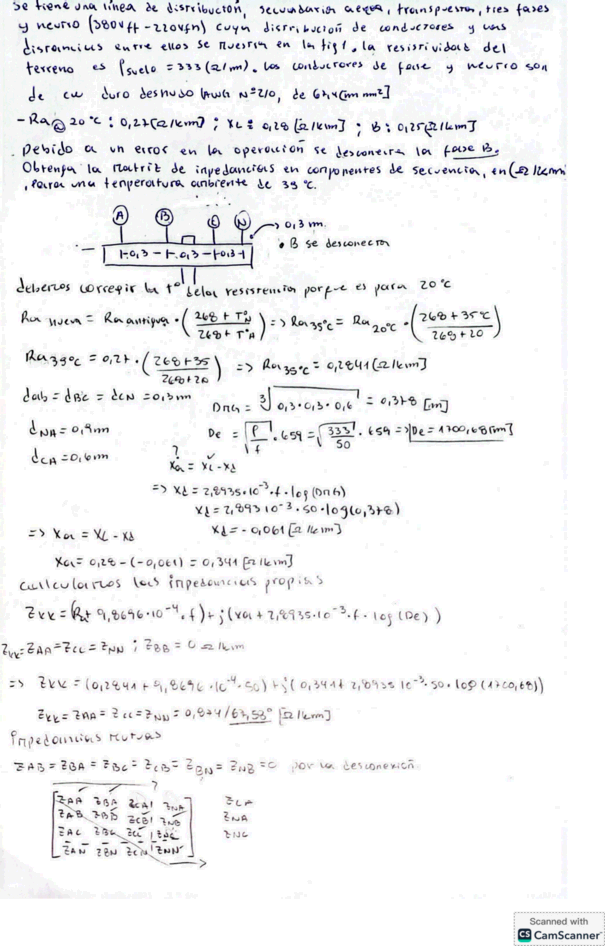 Se tiene una línea de distribución, secundaria aerea, transpuesta, tres fases
y neutro (380Vff-220Vfn) cuya distribución de conductores y las
distancias entre ellos se muestra en la fig1. la resistividad del
terreno es ρsuelo = 333 (Ω/m). Los conductores de fase y neutro son
de cu duro desnudo (AWG N°2/0, de 67,4 [mm²]
- Ra@ 20°C : 0,27 [Ω/km] ; XL = 0,28 [Ω/km] ; B: 0,25 [Ω/km]
. Debido a un error en la operación se desconecta la fase B.
Obtenga la matriz de impedancias en componentes de secuencia, en (Ω/km)
, para una temperatura ambiente de 35°C.
A B C N → 0,3 m.
• B se desconecta
|-0,3-|-0,3-|-0,3-|
debemos corregir la t° de las resistencia porque es para 20°C
Ra nueva = Ra antigua · (268 + T°N / 268 + T°A) => Ra35°C = Ra20°C · (268 + 35°C / 268 + 20)
Ra35°C = 0,27 · (268+35 / 268+20) => Ra35°C = 0,2841 [Ω/km]
dab = dBC = dCN = 0,3m
DMG = ∛0,3·0,3·0,6 = 0,378 [m]
dNA = 0,9m
De = √ρ/f · 659 = √333/50 · 659 => De = 1700,68 [m]
dCA = 0,6m
?
Xa = XL - Xd
=> Xd = 2,8935·10⁻³·f·log(DMG)
Xd = 2,893 10⁻³·50·log(0,378)
Xd = -0,061 [Ω/km]
=> Xa = XL - Xd
Xa = 0,28 - (-0,061) = 0,341 [Ω/km]
Calculamos las impedancias propias
ZKK = (Ra + 9,8696·10⁻⁴·f) + j(Xa + 2,8935·10⁻³·f·log(De))
ZKK = ZAA = ZCC = ZNN ; ZBB = 0 Ω/km
=> ZKK = (0,2841 + 9,8696·10⁻⁴·50) + j(0,341 + 2,8935 10⁻³·50·log(1700,68))
ZKK = ZAA = ZCC = ZNN = 0,874 /63,53° [Ω/km]
Impedancias Mutuas
ZAB = ZBA = ZBC = ZCB = ZBN = ZNB = 0 por la desconexión
ZAA ZBA ZCA ZNA ZCA
ZAB ZBB ZCB ZNB ZNA
ZAC ZBC ZCC ZNC ZNC
ZAN ZBN ZCN ZNN
Scanned with
CS CamScanner